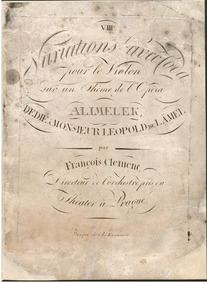 VIII
Variations
pour le Violon
sur un Thême de l'Opéra
ALIMELEK,
DEDIÉ A MONSIEUR LEOPOLD DE LAMEL
par
François Clement,
Directeur de l'orchestre
Theater à Prague